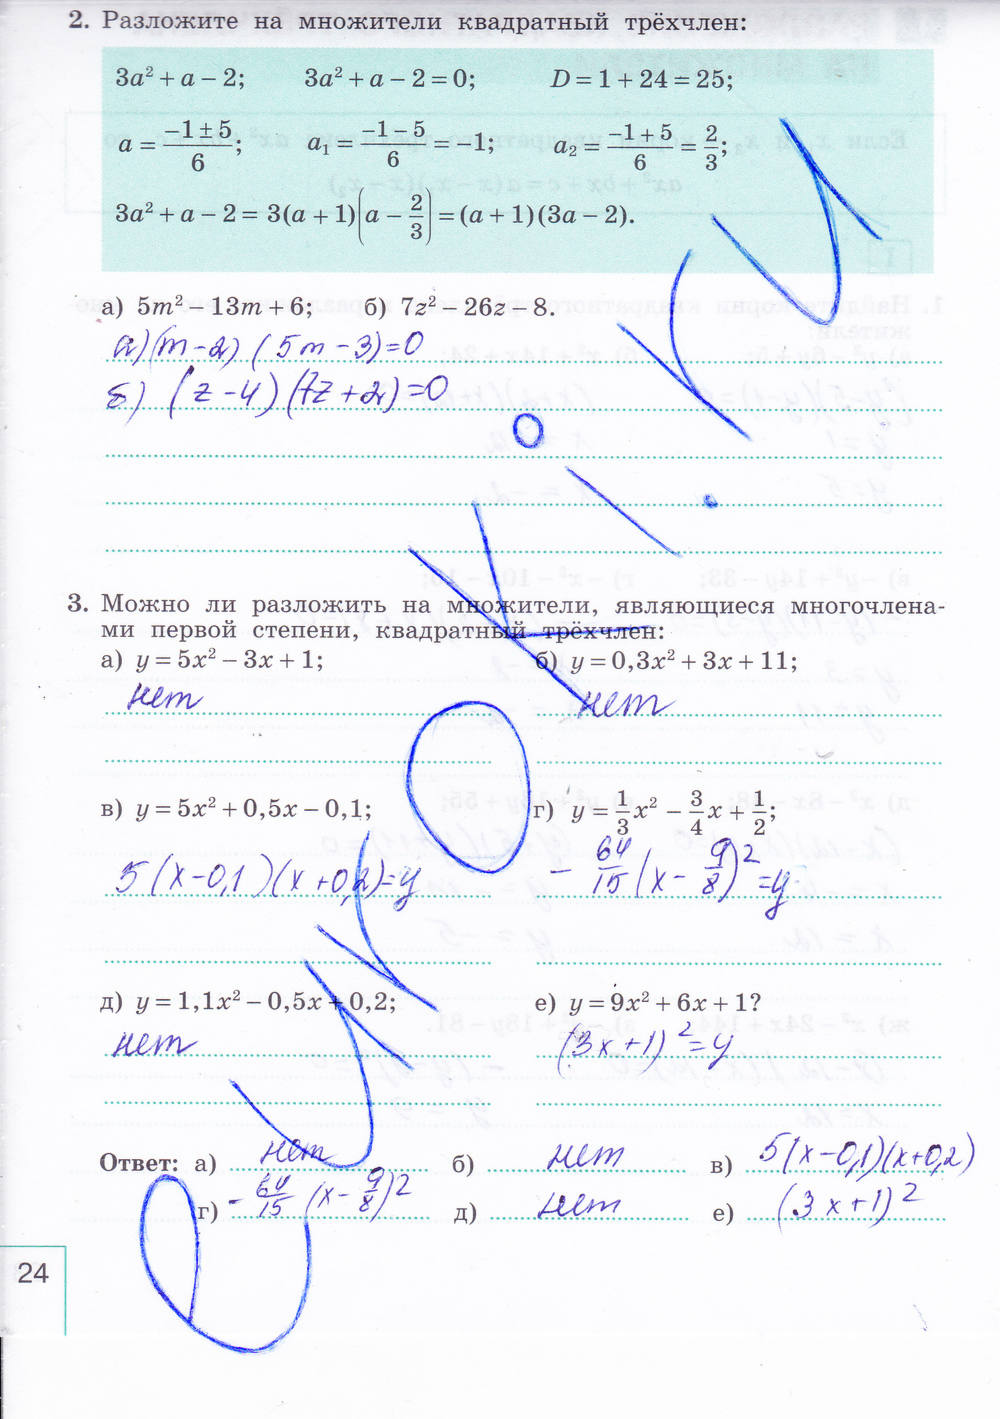 2. Разложите на множители квадратный трёхчлен:
3a² + a − 2; 3a² + a − 2 = 0; D = 1 + 24 = 25;
a = (−1 ± 5)/6; a₁ = (−1 − 5)/6 = −1; a₂ = (−1 + 5)/6 = 2/3;
3a² + a − 2 = 3(a + 1)(a − 2/3) = (a + 1)(3a − 2).
а) 5m² − 13m + 6; б) 7z² − 26z − 8.
а) (m − 2) (5m − 3) = 0
б) (z − 4) (7z + 2) = 0
3. Можно ли разложить на множители, являющиеся многочлена-
ми первой степени, квадратный трёхчлен:
а) y = 5x² − 3x + 1; б) y = 0,3x² + 3x + 11;
нет нет
в) y = 5x² + 0,5x − 0,1; г) y = 1/3 x² − 3/4 x + 1/2;
5(x − 0,1)(x + 0,2) = y − 64/15 (x − 9/8)² = y
д) y = 1,1x² − 0,5x + 0,2; е) y = 9x² + 6x + 1?
нет (3x + 1)² = y
Ответ: а) нет б) нет в) 5(x − 0,1)(x + 0,2)
г) − 64/15 (x − 9/8)² д) нет е) (3x + 1)²
24